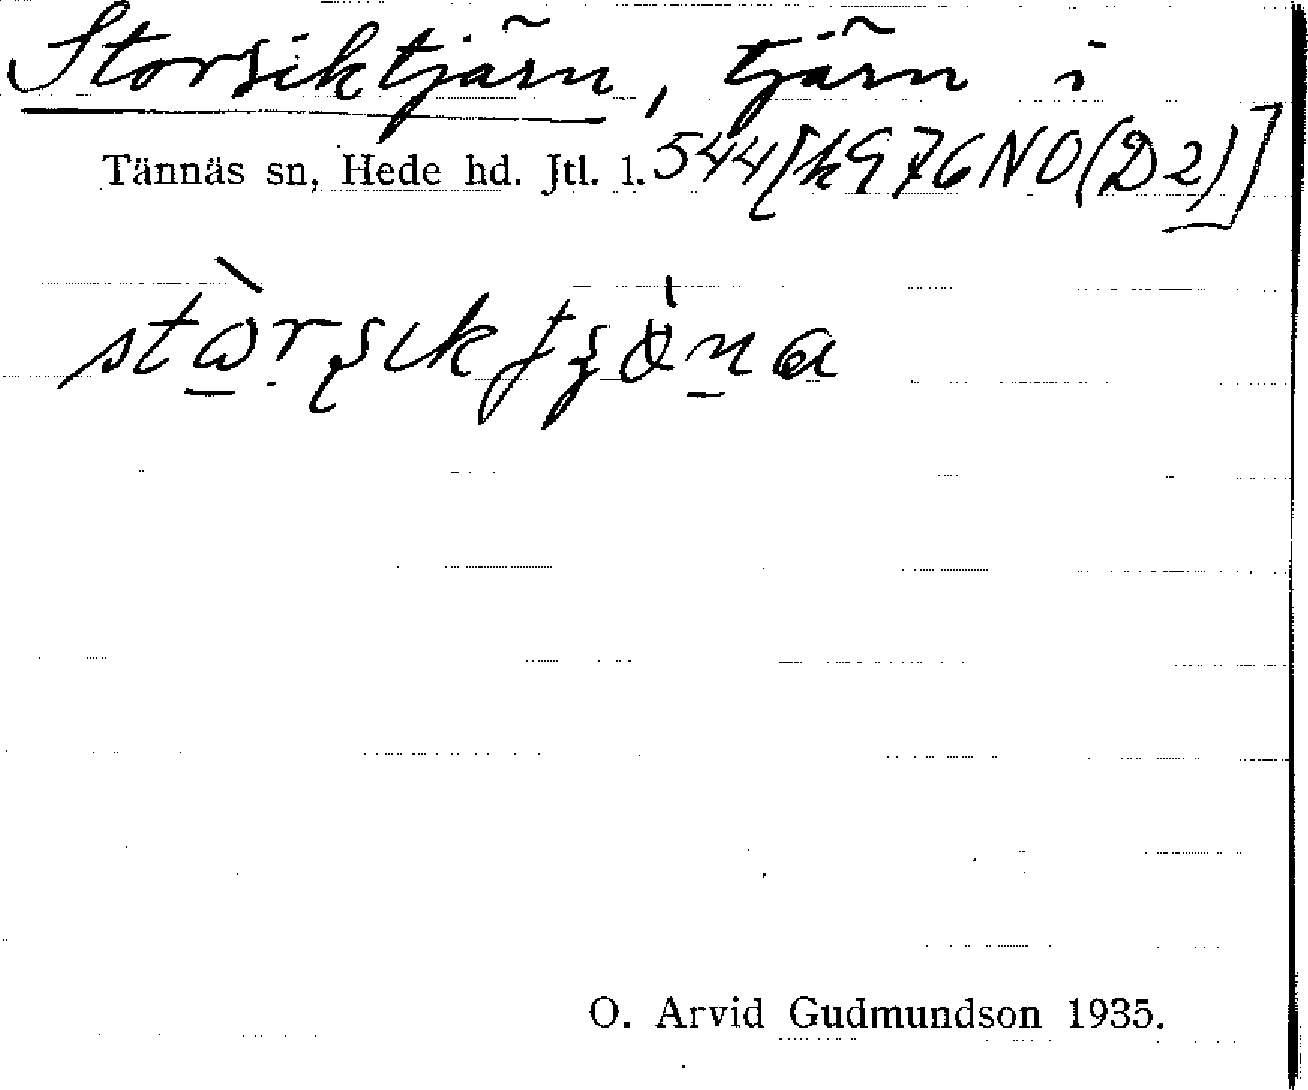 Storsiktjärn, tjärn i
Tännäs sn, Hede hd. Jtl. l. 544[k976NO(D2)]
O. Arvid Gudmundson 1935.